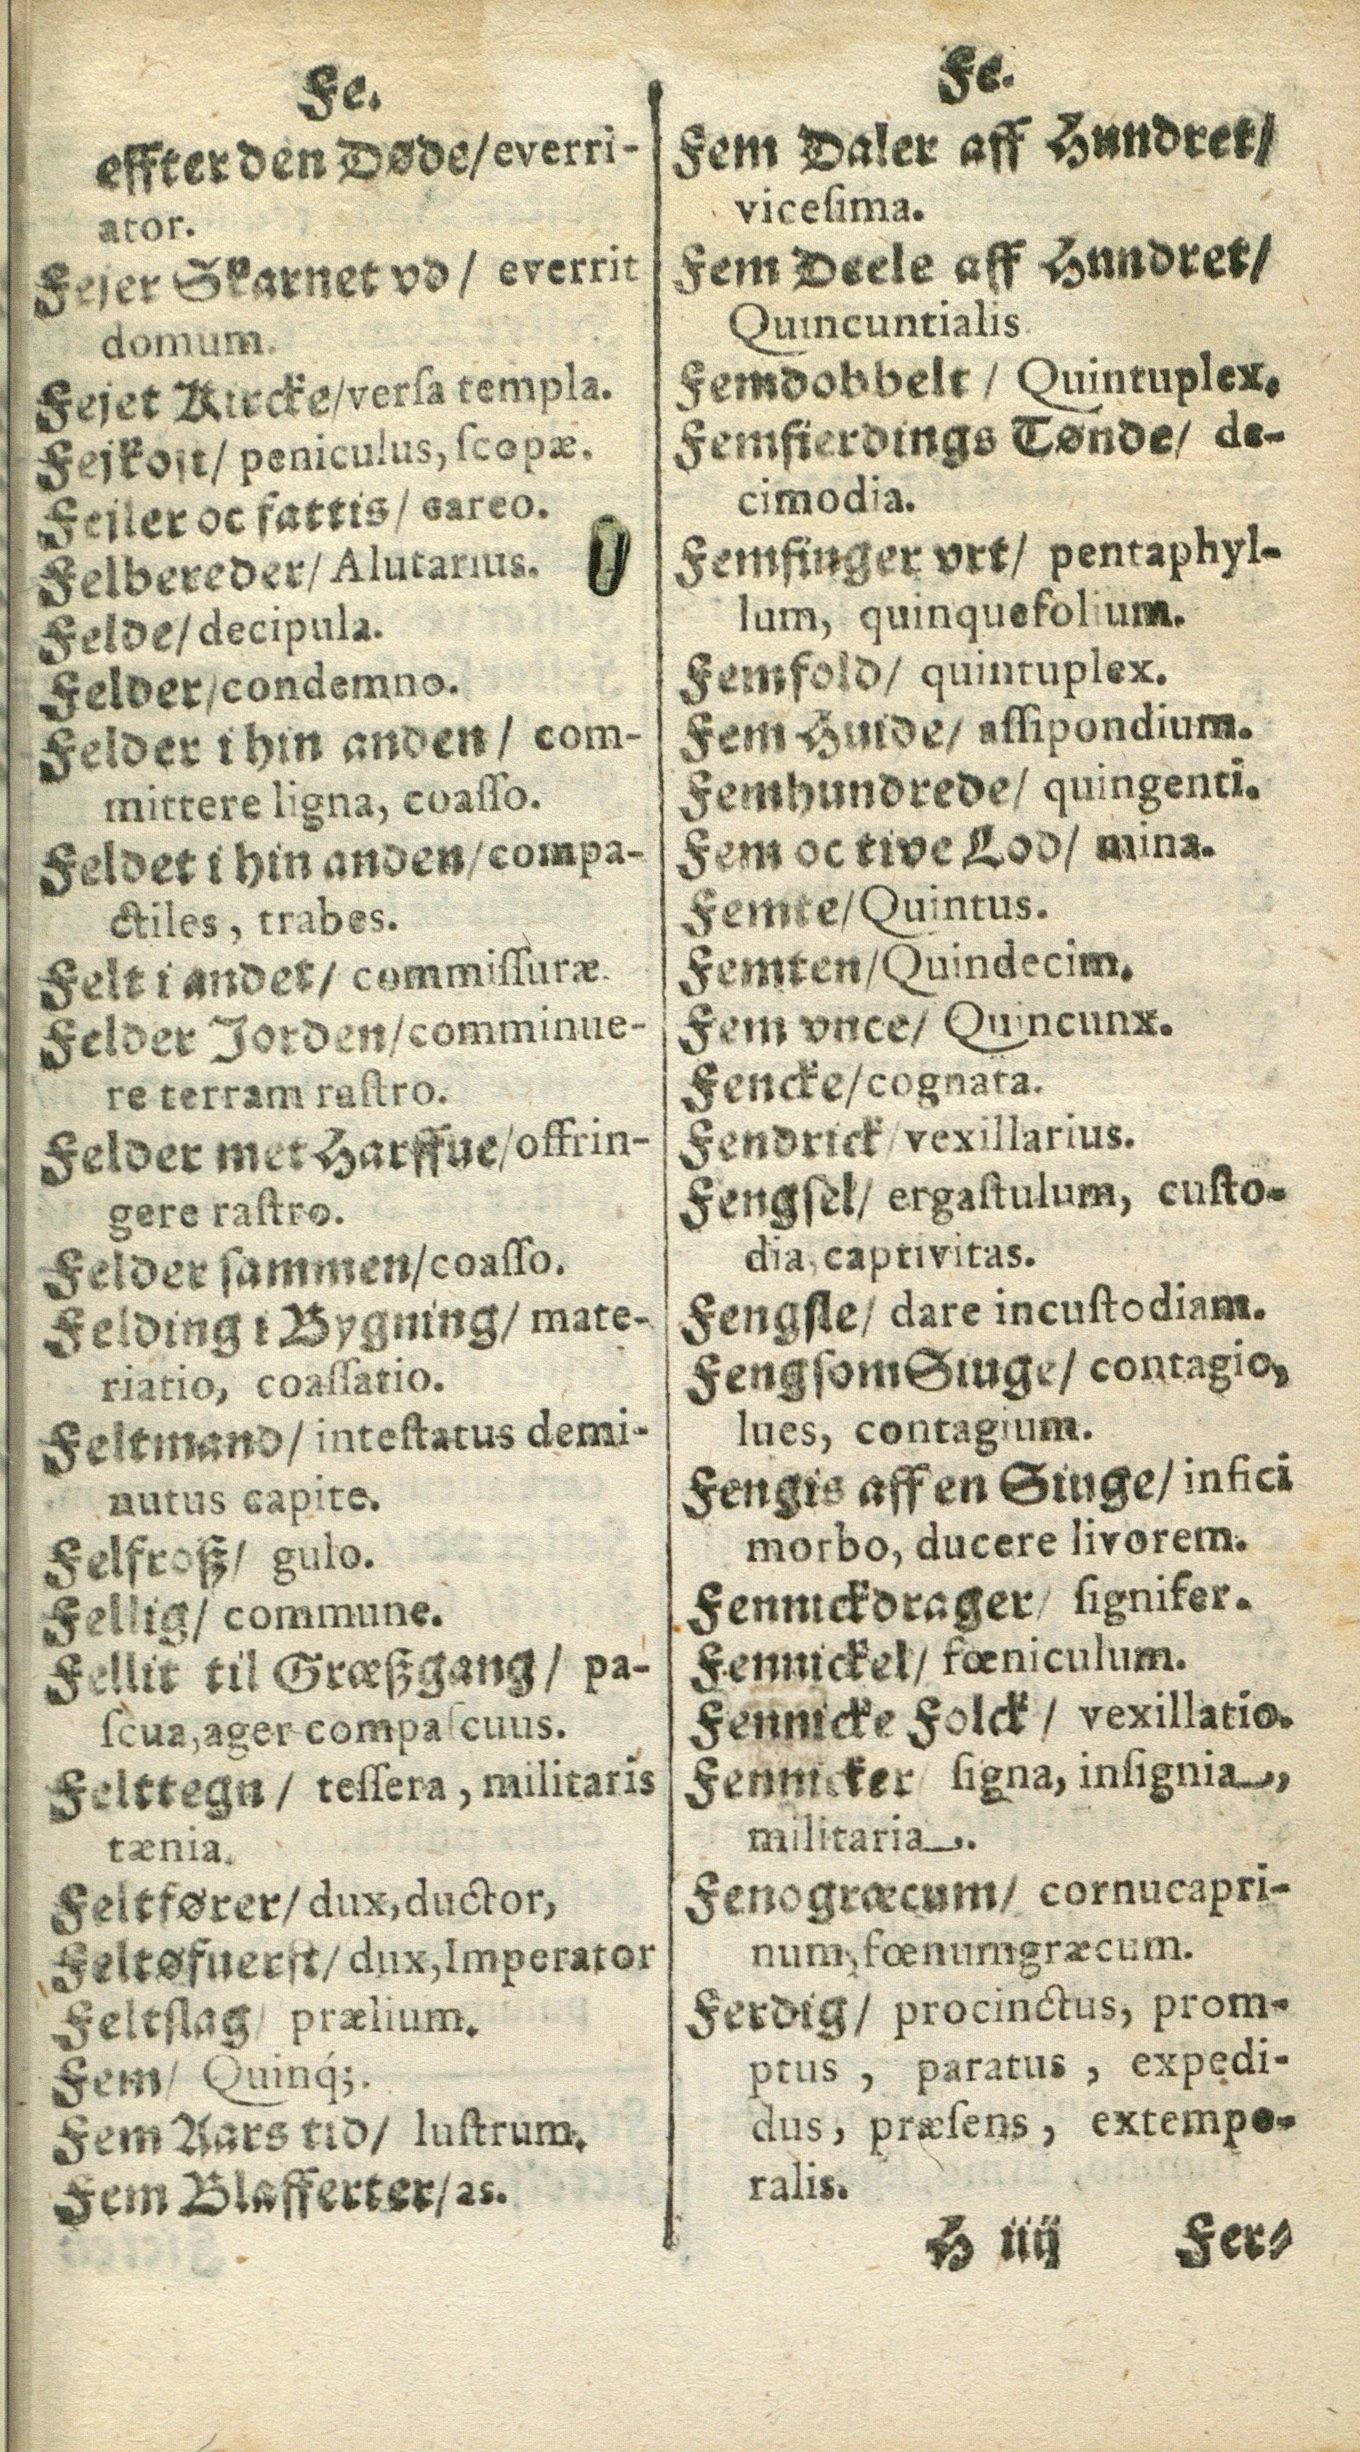 Fe.
effter den Døde/everri-
ator.
Fejer Skarnet vd/ everrit
domum.
Fejet Kircke/verſa templa.
Fejkost/ peniculus, ſcopæ.
Feiler oc fattis/ careo.
Felbereder/Alutarius.
Felde/decipula.
Felder/condemno.
Felder i hin anden/ com-
mittere ligna, coaſſo.
Feldet i hin anden/compa-
ctiles, trabes.
Felt i andet/ commiſſuræ.
Felder Jorden/comminue-
re terram raſtro.
Felder met Harffue/offrin-
gere raſtro.
Felder sammen/coaſſo.
Felding i Bygning/ mate-
riatio, coaſſatio.
Feltmand/ inteſtatus demi-
nutus capite.
Felfroß/ gulo.
Fellig/ commune.
Fellit til Græßgang/ pa-
ſcua,ager compaſcuus.
Felttegn/ teſſera, militaris
tænia.
Feltfører/dux,ductor,
Feltøfuerst/dux,Imperator
Feltslag/ prælium.
Fem/ Quinq́;.
Fem Aars tid/ luſtrum.
Fem Blafferter/as.
Fe.
Fem Daler aff Hundret/
viceſima.
Fem Deele aff Hundret/
Quincuntialis.
Femdobbelt/ Quintuplex.
Femfierdings Tønde/ de-
cimodia.
Femfinger vrt/ pentaphyl-
lum, quinquefolium.
Femfold/ quintuplex.
Fem Huide/ aſſipondium.
Femhundrede/ quingenti.
Fem oc tive Lod/ mina.
Femte/Quintus.
Femten/Quindecim.
Fem vnce/ Quincunx.
Fencke/cognata.
Fendrick/vexillarius.
Fengsel/ ergaſtulum, cuſto-
dia,captivitas.
Fengsle/ dare incuſtodiam.
Fengsom Siuge/ contagio,
lues, contagium.
Fengis aff en Siuge/ infici
morbo, ducere livorem.
Fennickdrager/ ſignifer.
Fennickel/ fœniculum.
Fennicke Folck/ vexillatio.
Fennicker/ ſigna, inſignia,
militaria.
Fenogræcum/ cornucapri-
num,fœnumgræcum.
Ferdig/ procinctus, prom-
ptus, paratus, expedi-
dus, præſens, extempo-
ralis.
H iiij Fer-